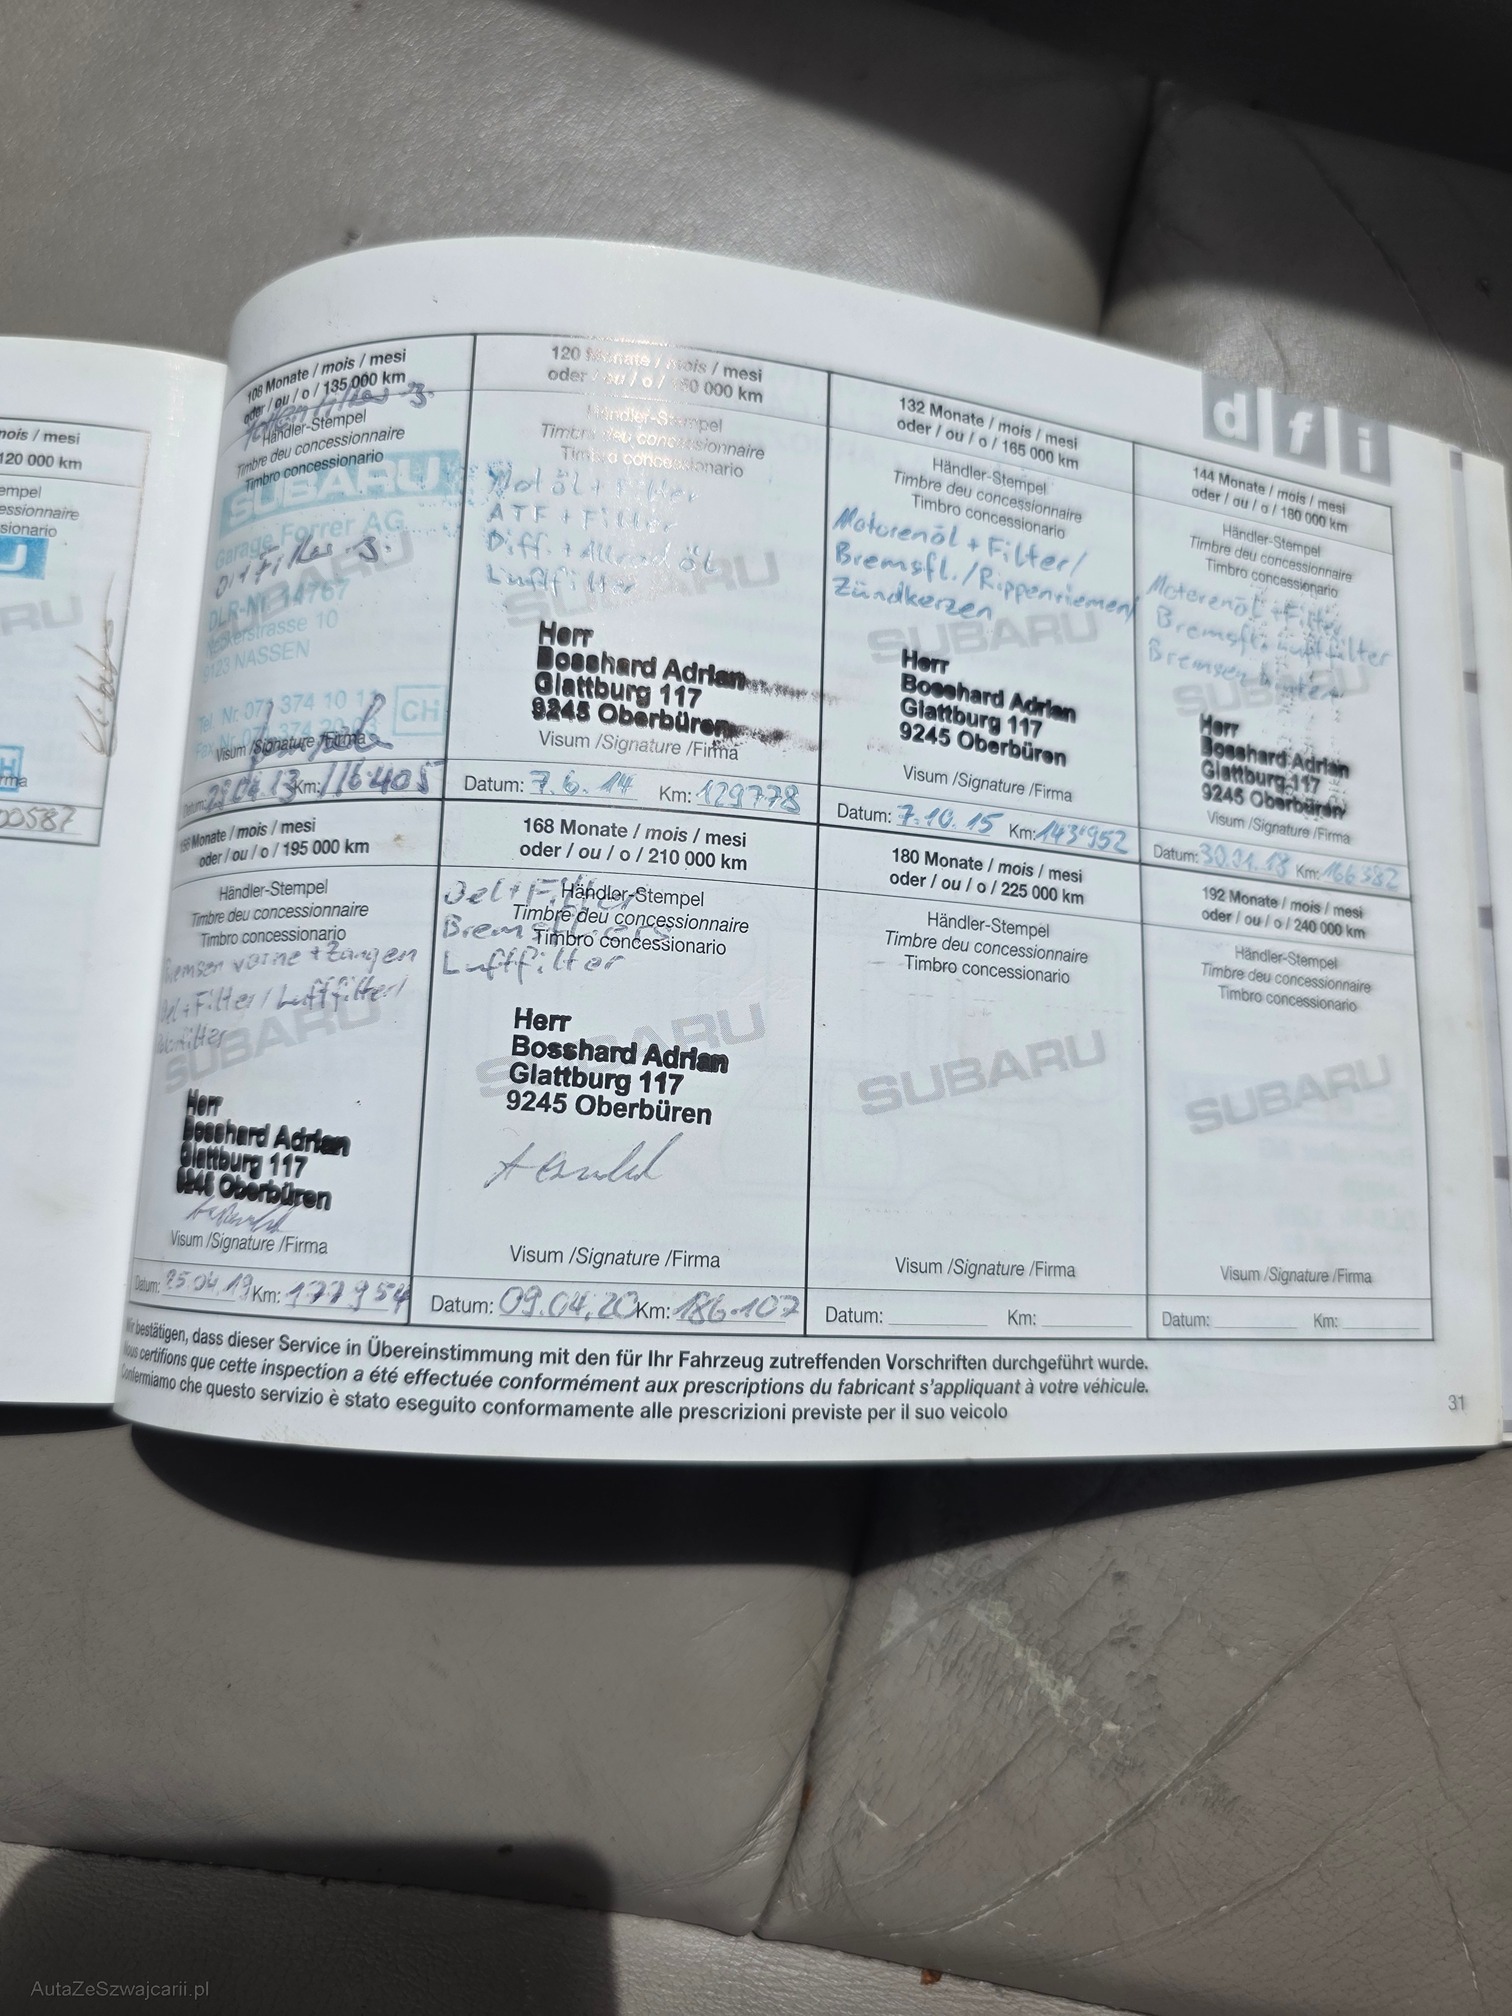 mois / mesi
120 000 km
empel
essionnaire
sionario
U
H
rma
00587
108 Monate / mois / mesi
oder / ou / o / 135 000 km
Händler-Stempel
Timbre deu concessionnaire
Timbro concessionario
SUBARU
Garage Forrer AG
DLR-Nr. 14767
10
9123 NASSEN
Tel. Nr. 071 374 10 11
CH
Visum /Signature /Firma
Datum: 29.04.13 Km: 116.405
120 Monate / mois / mesi
oder / ou / o / 150 000 km
Händler-Stempel
Timbre deu concessionnaire
Timbro concessionario
Motöl + Filter
ATF + Filter
Diff. + Allrad öl
Luftfilter
SUBARU
Herr
Bosshard Adrian
Glattburg 117
9245 Oberbüren
Visum /Signature /Firma
Datum: 7.6.14 Km: 129778
132 Monate / mois / mesi
oder / ou / o / 165 000 km
Händler-Stempel
Timbre deu concessionnaire
Timbro concessionario
Motorenöl + Filter/
Bremsfl./Rippenriemen/
Zündkerzen
SUBARU
Herr
Bosshard Adrian
Glattburg 117
9245 Oberbüren
Visum /Signature /Firma
Datum: 7.10.15 Km: 143'952
dfi
144 Monate / mois / mesi
oder / ou / o / 180 000 km
Händler-Stempel
Timbre deu concessionnaire
Timbro concessionario
Motorenöl + Filter
Bremsfl. Luftfilter
Bremsen hinten
SUBARU
Herr
Bosshard Adrian
Glattburg 117
9245 Oberbüren
Visum /Signature /Firma
Datum: 30.01.18 Km: 166382
156 Monate / mois / mesi
oder / ou / o / 195 000 km
Händler-Stempel
Timbre deu concessionnaire
Timbro concessionario
Bremsen vorne + Zangen
Oel + Filter / Luftfilter/
SUBARU
Herr
Bosshard Adrian
Glattburg 117
9245 Oberbüren
Visum /Signature /Firma
Datum: 25.04.19 Km: 177954
168 Monate / mois / mesi
oder / ou / o / 210 000 km
Händler-Stempel
Timbre deu concessionnaire
Timbro concessionario
Oel + Filter
Luftfilter
SUBARU
Herr
Bosshard Adrian
Glattburg 117
9245 Oberbüren
Visum /Signature /Firma
Datum: 09.04.20 Km: 186.107
180 Monate / mois / mesi
oder / ou / o / 225 000 km
Händler-Stempel
Timbre deu concessionnaire
Timbro concessionario
SUBARU
Visum /Signature /Firma
Datum: Km:
192 Monate / mois / mesi
oder / ou / o / 240 000 km
Händler-Stempel
Timbre deu concessionnaire
Timbro concessionario
SUBARU
Visum /Signature /Firma
Datum: Km:
Wir bestätigen, dass dieser Service in Übereinstimmung mit den für Ihr Fahrzeug zutreffenden Vorschriften durchgeführt wurde.
Nous certifions que cette inspection a été effectuée conformément aux prescriptions du fabricant s'appliquant à votre véhicule.
Confermiamo che questo servizio è stato eseguito conformamente alle prescrizioni previste per il suo veicolo
31
AutaZeSzwajcarii.pl